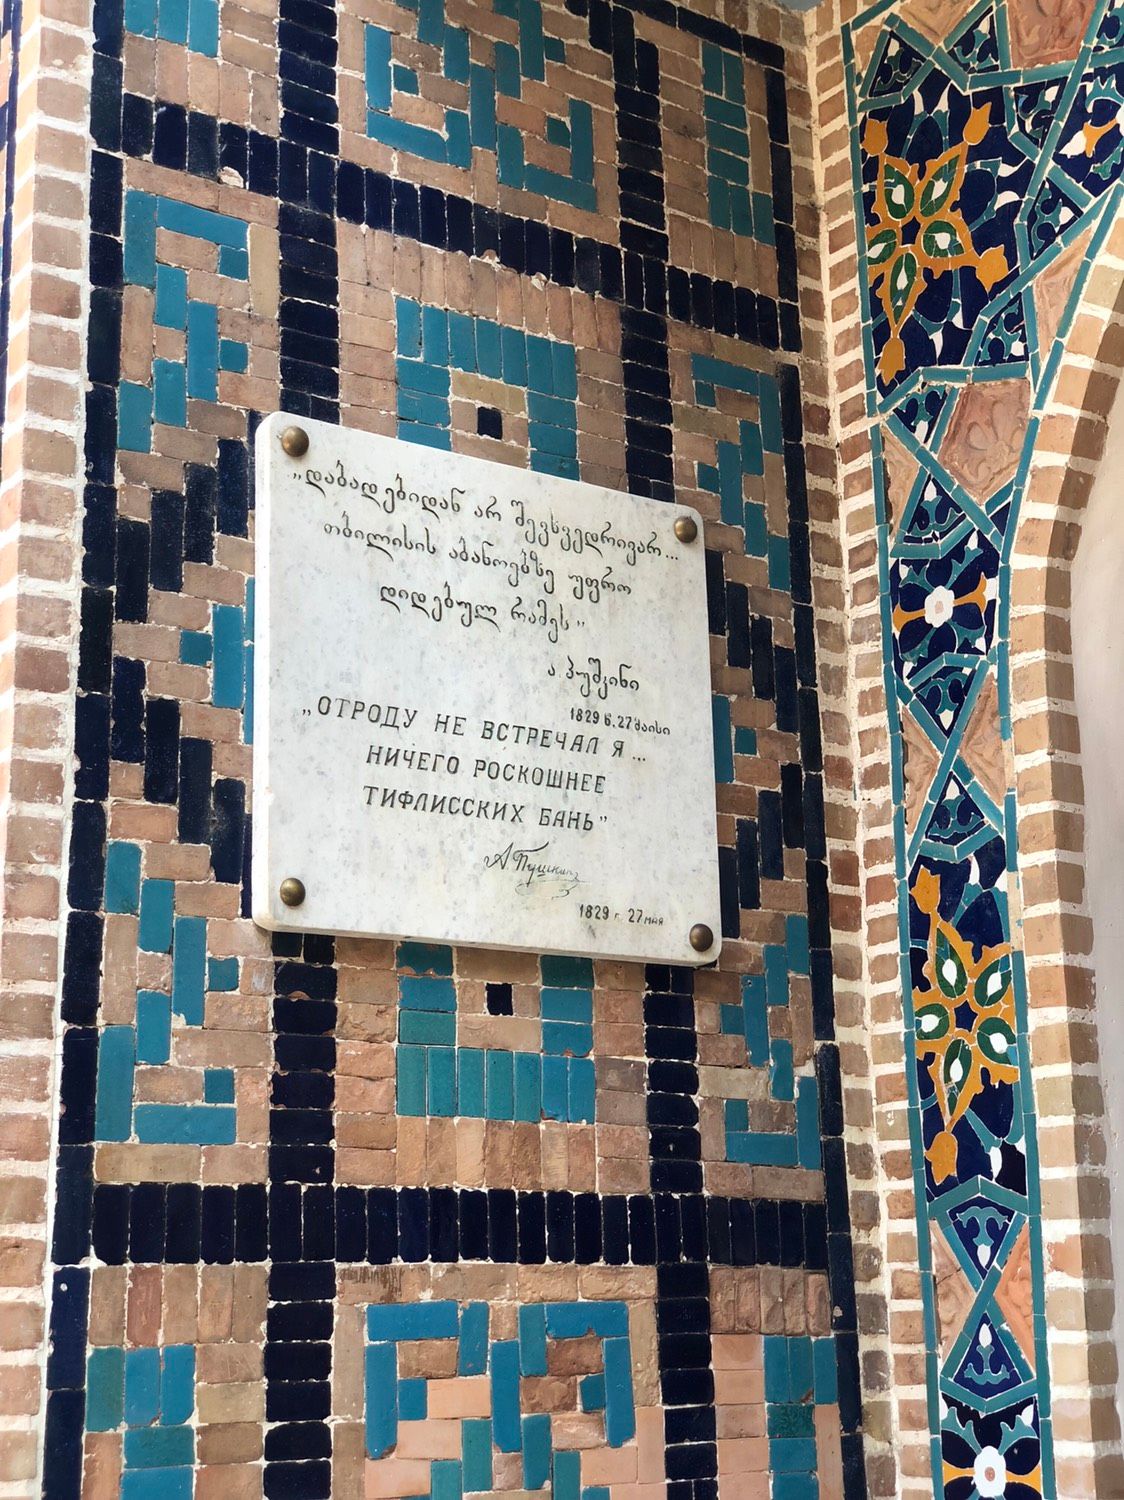 „დაბადებიდან არ შევსვედრივარ...
თბილისის აბანოებზე უფრო
დიდებულ რამეს”
ა. პუშკინი
1829 წ. 27 მაისი
„ОТРОДУ НЕ ВСТРЕЧАЛ Я...
НИЧЕГО РОСКОШНЕЕ
ТИФЛИССКИХ БАНЬ”
А. Пушкин
1829 г. 27 мая